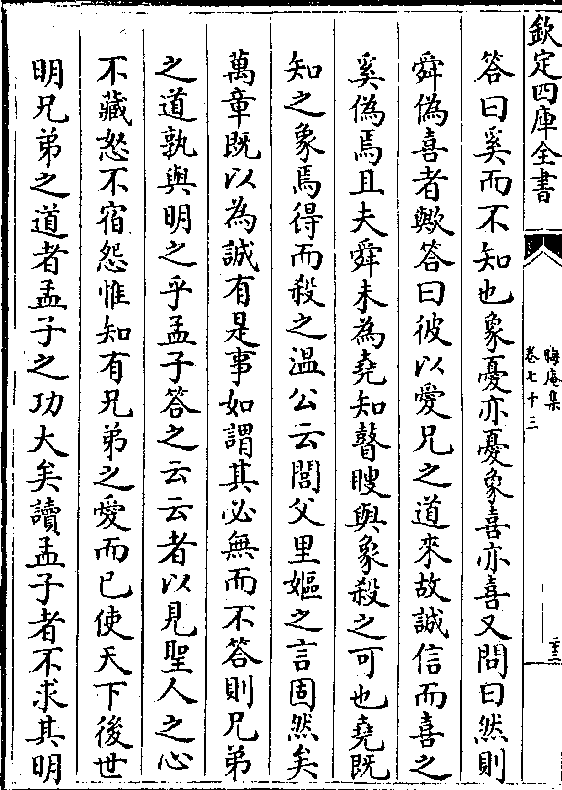 欽定四庫全書
晦庵集
卷七十三
答曰奚而不知也象憂亦憂象喜亦喜又問曰然則
舜偽喜者歟答曰彼以愛兄之道來故誠信而喜之
奚偽焉且夫舜未為堯知瞽瞍與象殺之可也堯既
知之象焉得而殺之温公云閭父里嫗之言固然矣
萬章既以為誠有是事如謂其必無而不答則兄弟
之道孰與明之乎孟子答之云云者以見聖人之心
不藏怒不宿怨惟知有兄弟之愛而已使天下後世
明兄弟之道者孟子之功大矣讀孟子者不求其明